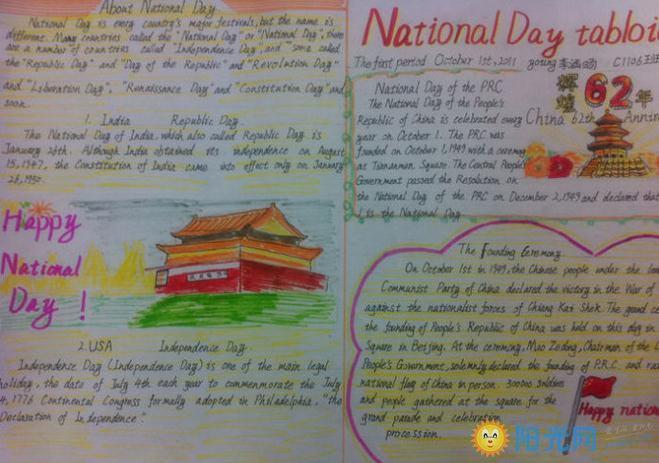 About National Day
National Day is every country's major festivals, but the name is
different. Many countries called the "National Day" or "National Day", there
are a number of countries called "Independence Day", and some called
the "Republic Day" and "Day of the Republic" and "Revolution Day"
and "Liberation Day", "Renaissance Day" and "Constitution Day" and
soon.
1. India Republic Day
The National Day of India, which also called Republic Day is
January 26th. Although India obtained its independence on August
15, 1947, the Constitution of India came into effect only on January
26, 1950.
Happy
National
Day !
2. USA Independence Day
Independence Day (Independence Day) is one of the main legal
holiday, the date of July 4th each year to commemorate the July
4, 1776 Continental Congress formally adopted in Philadelphia, "the
Declaration of Independence".
National Day tabloid
The first period October 1st, 2011 C1106班
辉煌62年
China 62th Anniver
National Day of the PRC
The National Day of the People's
Republic of China is celebrated every
year on October 1. The PRC was
founded on October 1, 1949 with a ceremony
at Tiananmen Square. The Central People's
Government passed the Resolution on
the National Day of the PRC on December 2, 1949 and declared that
1 is the National Day
The Founding Ceremony
On October 1st in 1949, the Chinese people under the
Communist Party of China declared the victory in the War of
against the nationalist forces of Chiang Kai Shek. The grand
the founding of People's Republic of China was held on this day in
Square in Beijing. At the ceremony, Mao Zedong, Chairman of the
People's Government, solemnly declared the founding of P.R.C. and
national flag of China in person. 300000 soldiers
and people gathered at the square for the
grand parade and celebration
procession.
Happy nation
阳光网